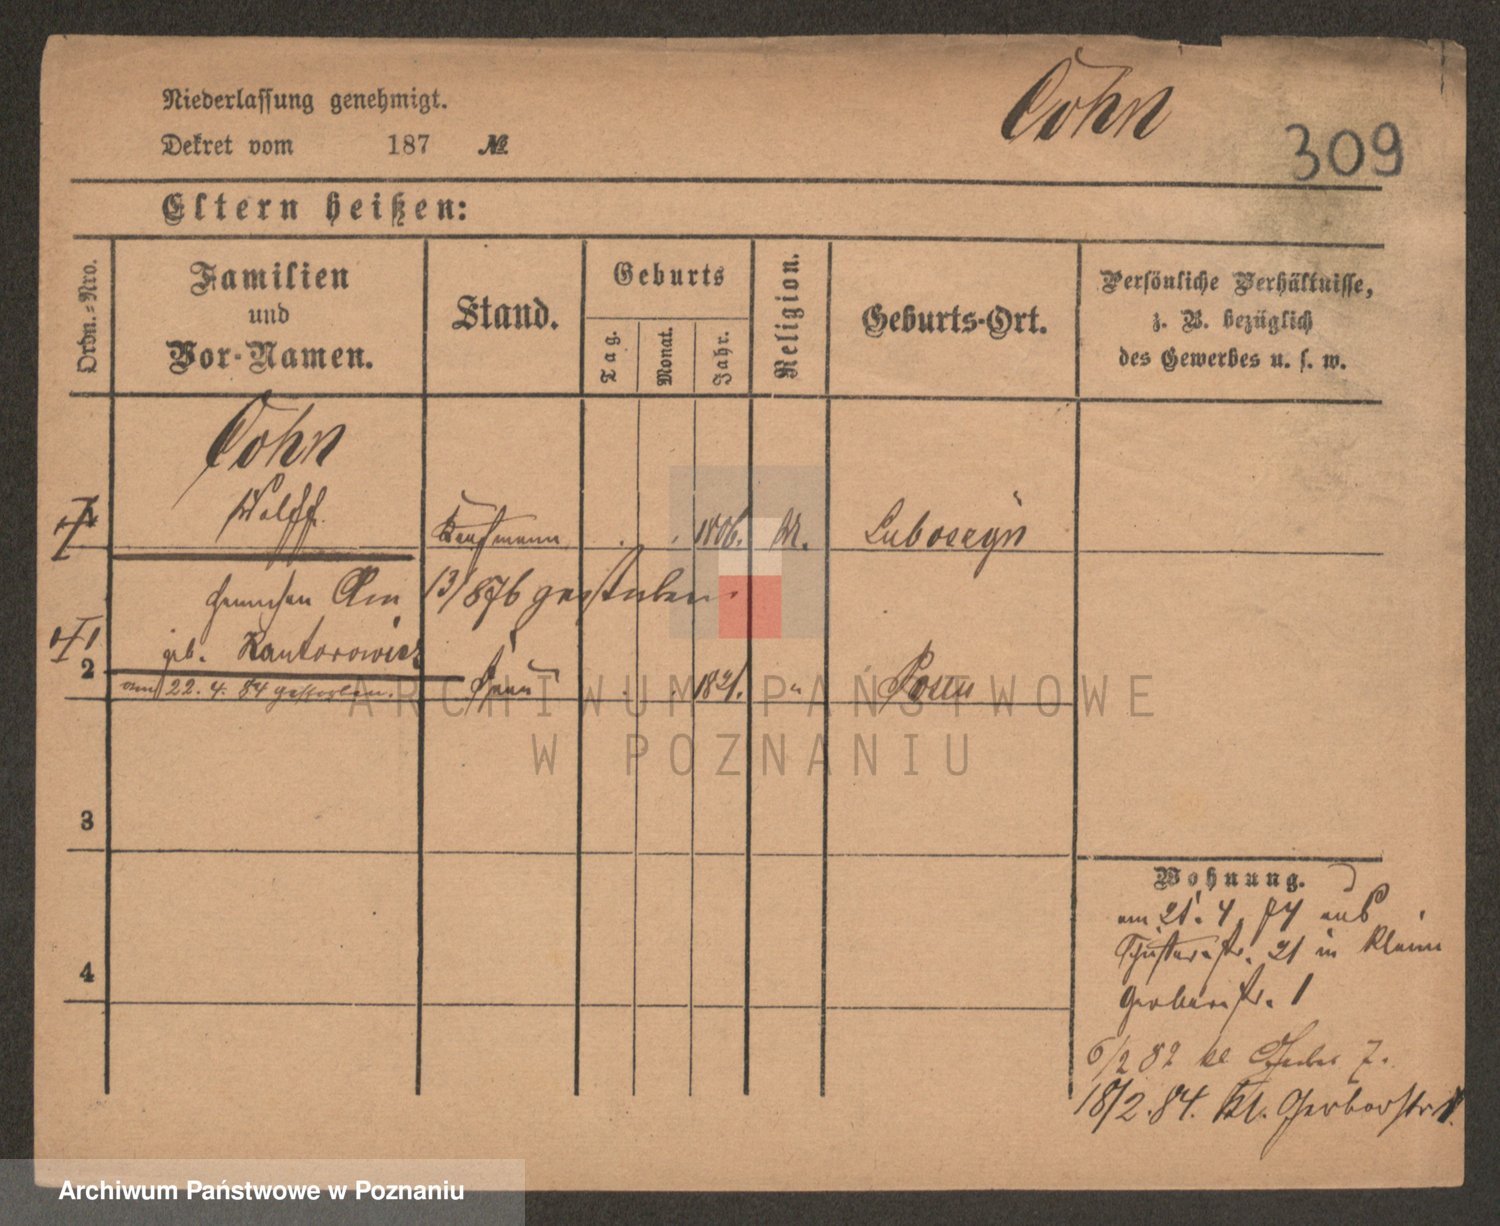 Niederlassung genehmigt.
Dekret vom 187 №
Cohn
309
Eltern heißen:
Ordn.-Nro.
Familien
und
Vor-Namen.
Stand.
Geburts
Tag.
Monat.
Jahr.
Religion.
Geburts-Ort.
Persönliche Verhältnisse,
z. B. bezüglich
des Gewerbes u. s. w.
Cohn
Wolff
Kaufmann 1806. M.
Am 13/876 gestorben
geb. Kantorowicz
2 Frau 1821. " Posen
am 22. 4. 84 gestorben.
3
4
Wohnung.
am 21. 4. 74 aus
Schusterstr. 21 in Klein
Gerberstr. 1
6/2 82 kl Gerber 7.
18/2. 84. Kl. Gerberstr 1.
ARCHIWUM PAŃSTWOWE
W POZNANIU
Archiwum Państwowe w Poznaniu